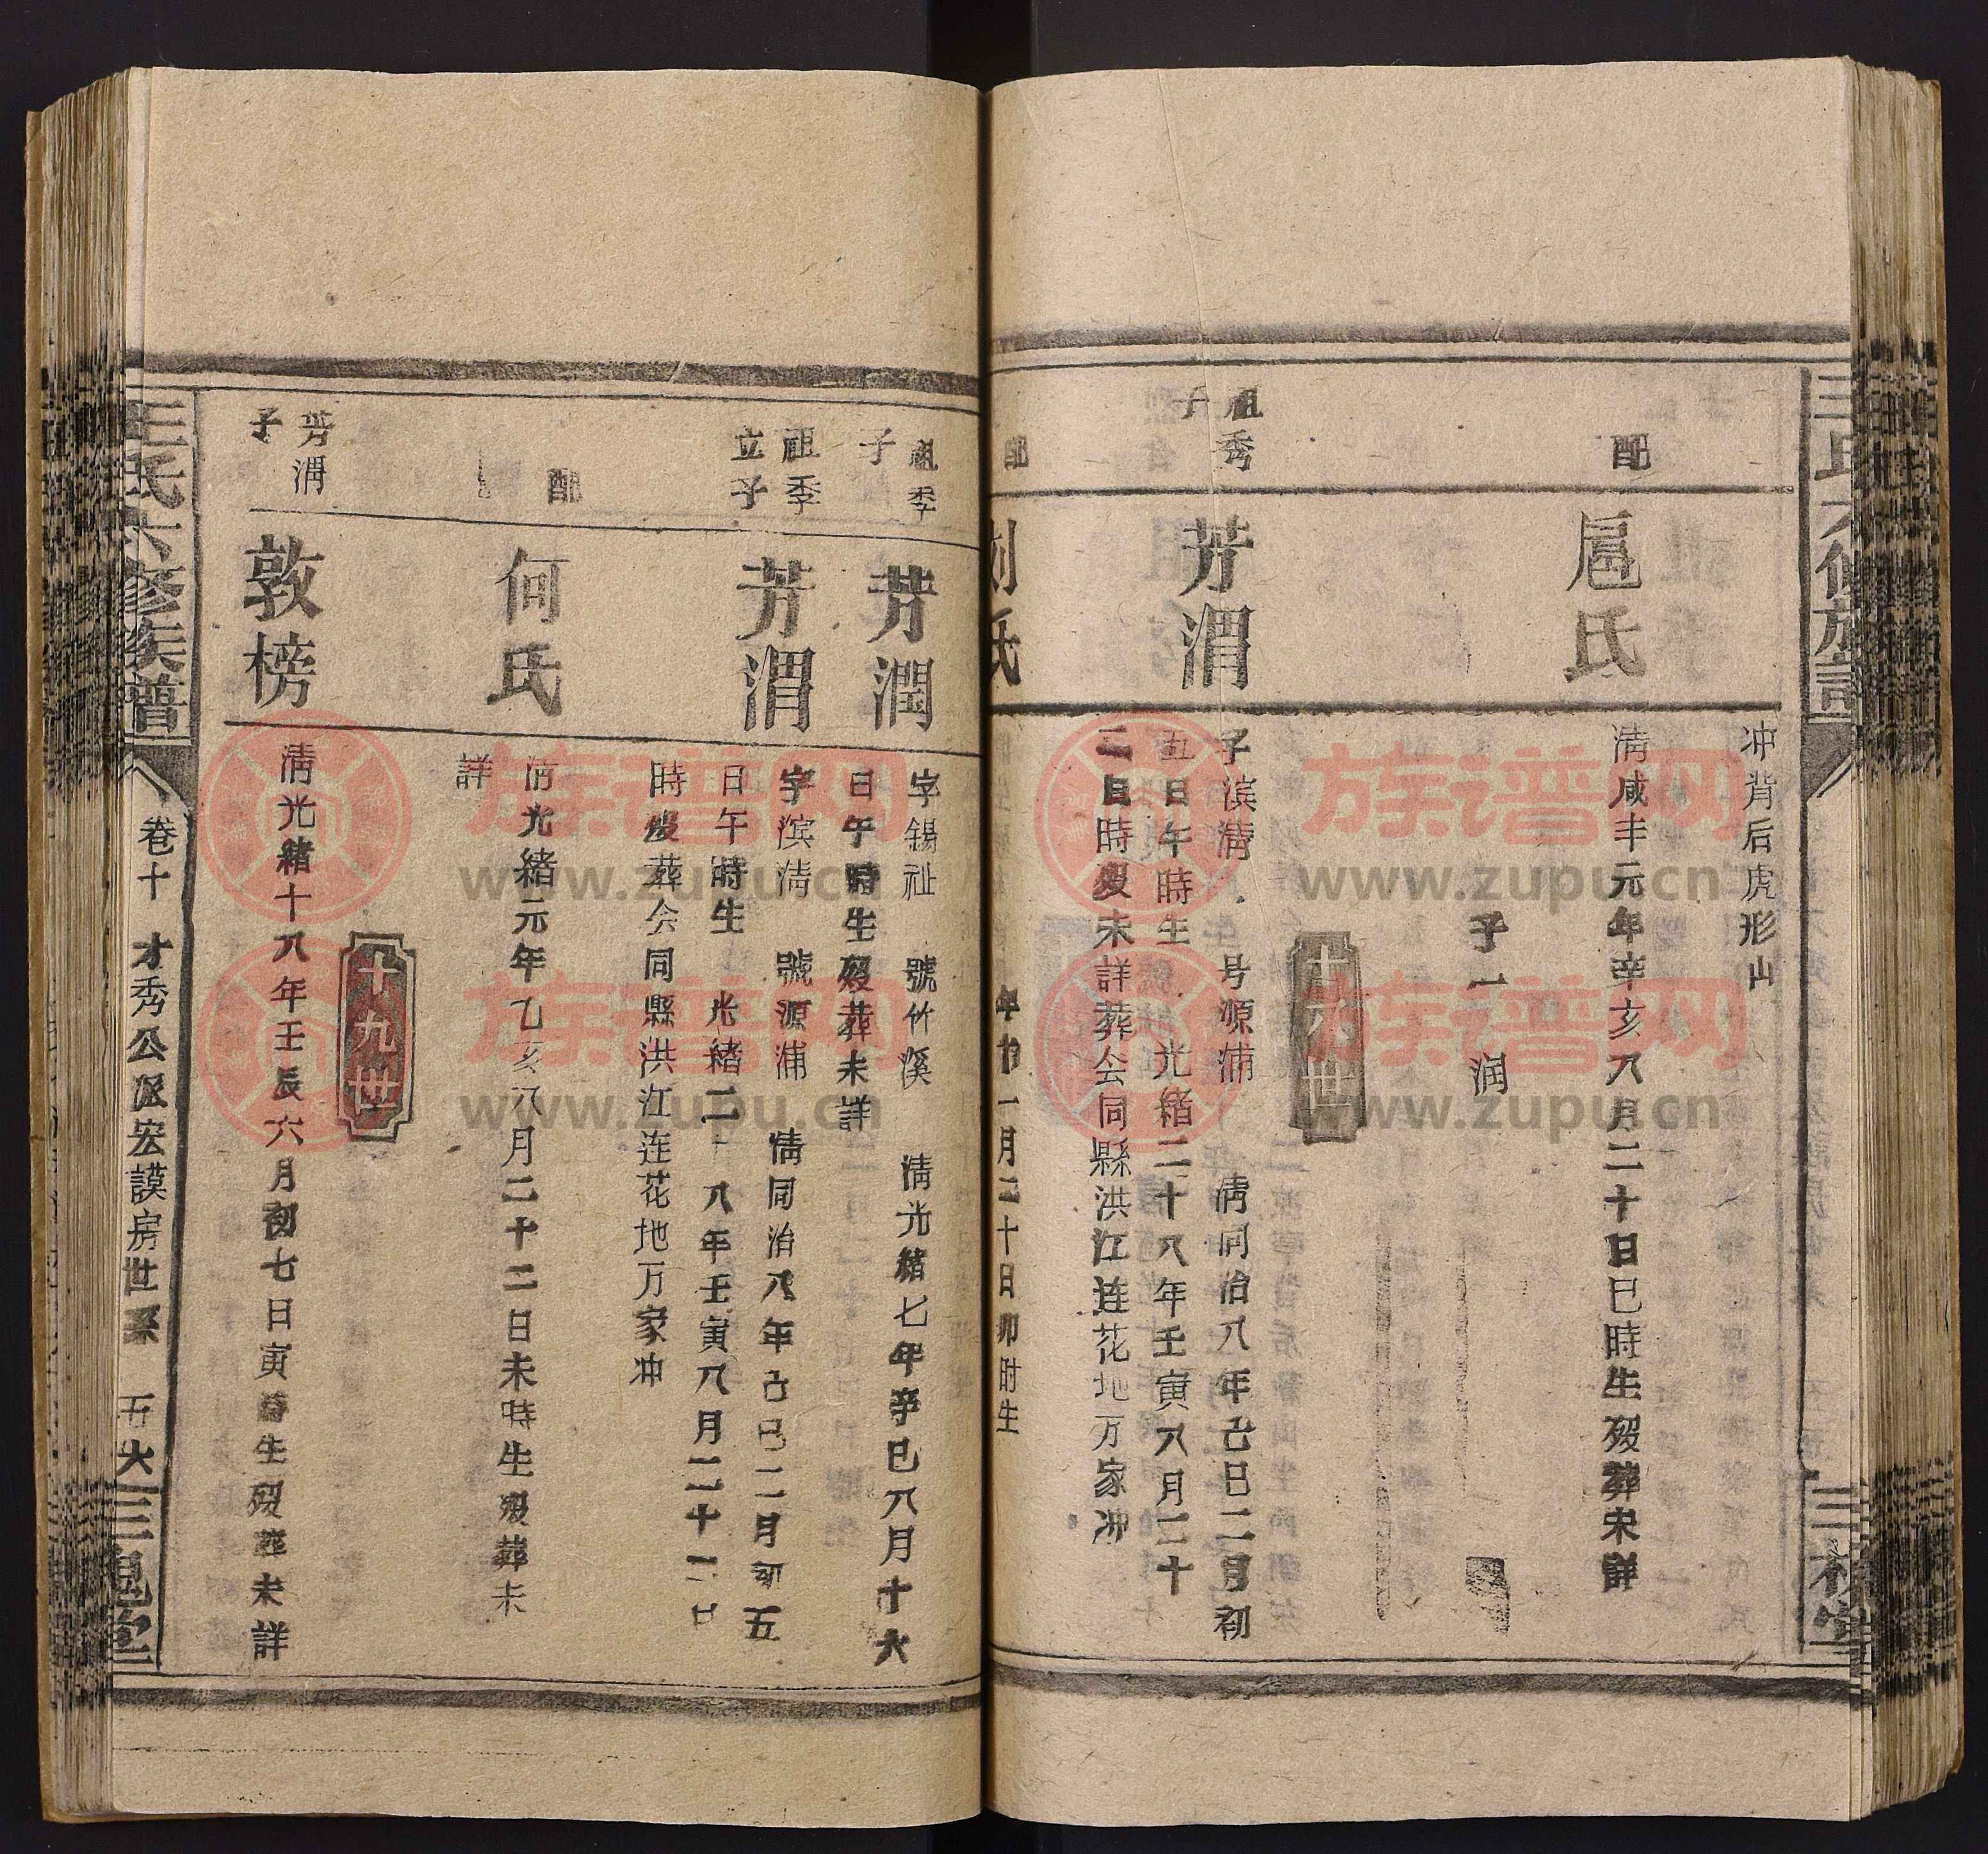 冲背后虎形山
配
扈氏
清咸丰元年辛亥八月二十日巳時生殁葬未詳
子一 润
十八世
祖秀
子
芳渭
子滨清 号源浦 清同治八年己巳二月初
五日午時生 光緒二十八年壬寅八月二十
二日時殁未詳葬会同縣洪江连花地万家冲
配
刘氏
年 十一月二十日卯时生
王氏六修族譜
三槐堂
祖季
子
芳潤
字錫祉 號竹溪 清光緒七年辛巳八月十六
日午時生殁葬未詳
祖季
立子
芳渭
字滨清 號源浦 清同治八年己巳二月初五
日午時生 光緒二十八年壬寅八月二十二日
時殁葬会同縣洪江连花地万家冲
配
何氏
清光緒元年乙亥八月二十二日未時生殁葬未
詳
十九世
芳渭
子
敦榜
清光緒十八年壬辰六月初七日寅時生殁葬未詳
王氏六修族譜
卷十 才秀公派宏謨房世系 五六
三槐堂
族谱网
www.zupu.cn
族谱网
www.zupu.cn
族谱网
www.zupu.cn
族谱网
www.zupu.cn